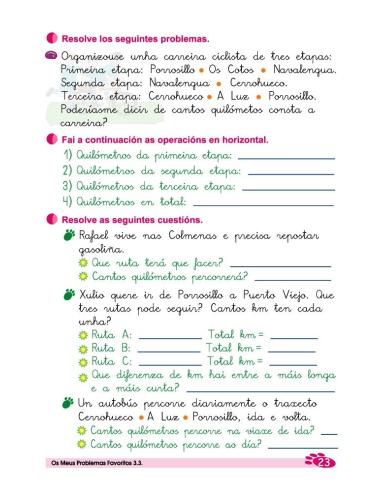 Resolve los seguintes problemas.
Organizouse unha carreira ciclista de tres etapas:
Primeira etapa: Porrosillo • Os Cotos • Navalengua.
Segunda etapa: Navalengua • Cerrohueco.
Terceira etapa: Cerrohueco • A Luz • Porrosillo.
Poderíasme dicir de cantos quilómetos consta a
carreira?
Fai a continuación as operacións en horizontal.
1) Quilómetros da primeira etapa:
2) Quilómetros da segunda etapa:
3) Quilómetros da terceira etapa:
4) Quilómetros en total:
Resolve as seguintes cuestións.
Rafael vive nas Colmenas e precisa repostar
gasolina.
Que ruta terá que facer?
Cantos quilómetros percorrerá?
Xulio quere ir de Porrosillo a Puerto Viejo. Que
tres rutas pode seguir? Cantos km ten cada
unha?
Ruta A: Total km =
Ruta B: Total km =
Ruta C: Total km =
Que diferenza de km hai entre a máis longa
e a máis curta?
Un autobús percorre diariamente o traxecto
Cerrohueco • A Luz • Porrosillo, ida e volta.
Cantos quilómetros percorre na viaxe de ida?
Cantos quilómetros percorre ao día?
Os Meus Problemas Favoritos 3.3.
23